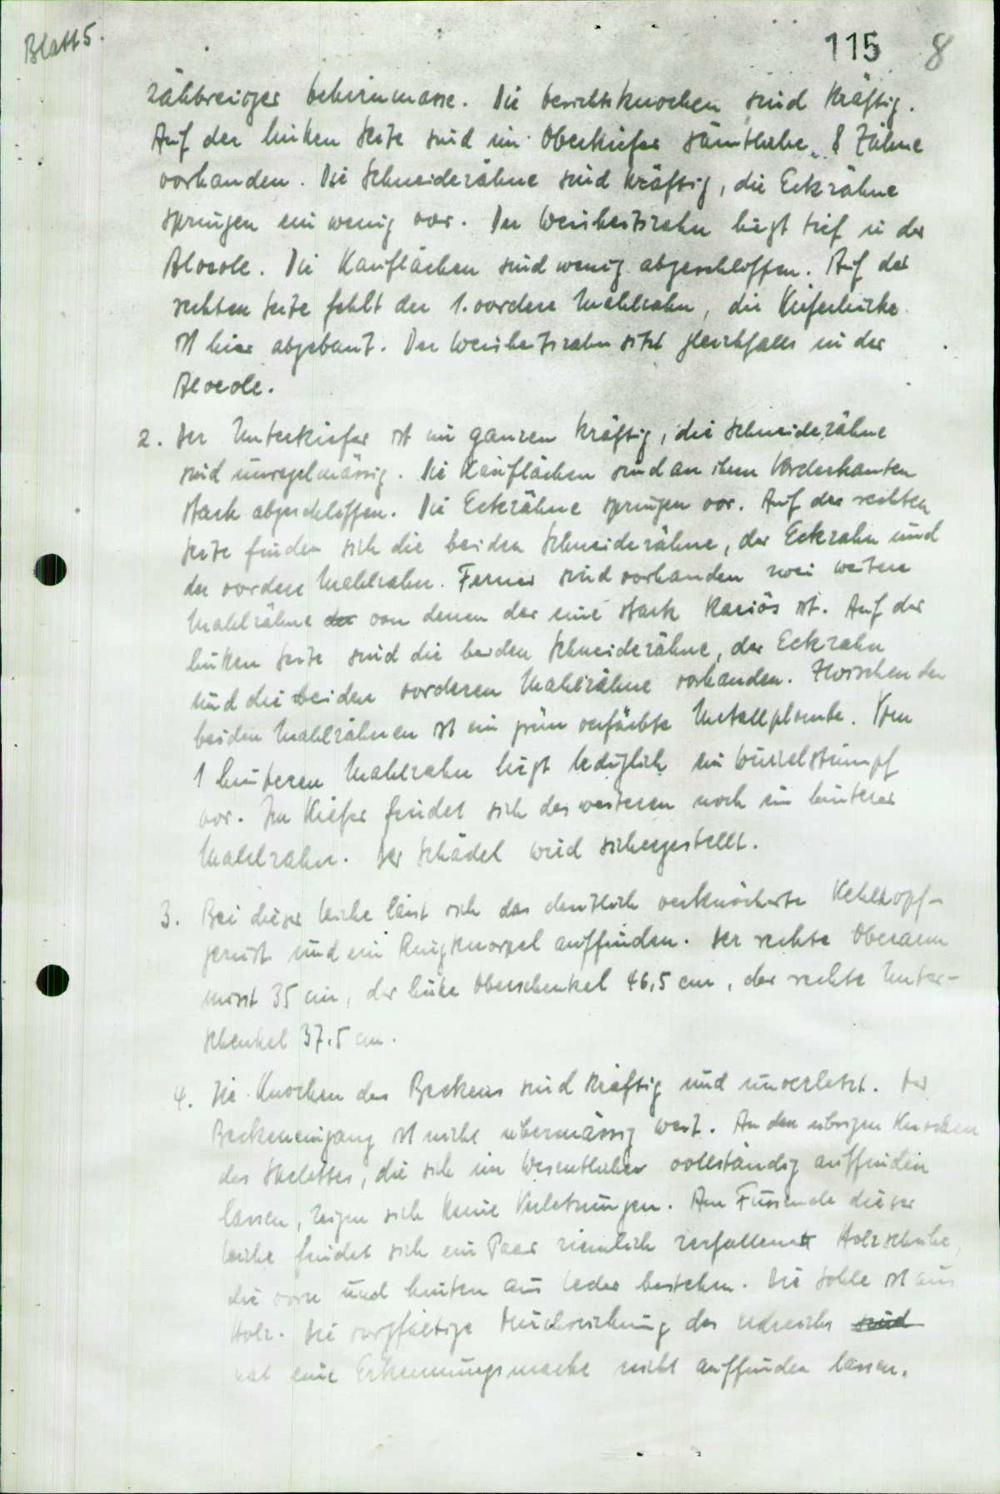 Blatt 5.
115 8
zähbreiiger Gehirnmasse. Die Gesichtsknochen sind kräftig.
Auf der linken Seite sind im Oberkiefer sämtliche 8 Zähne
vorhanden. Die Schneidezähne sind kräftig, die Eckzähne
springen ein wenig vor. Der Weisheitszahn liegt tief in der
Alveole. Die Kauflächen sind wenig abgeschliffen. Auf der
rechten Seite fehlt der 1. vordere Mahlzahn, die Kieferlücke
ist hier abgebaut. Der Weisheitszahn sitzt gleichfalls in der
Alveole.
2. Der Unterkiefer ist im ganzen kräftig, die Schneidezähne
sind unregelmässig. Die Kauflächen sind an ihren Vorderkanten
stark abgeschliffen. Die Eckzähne springen vor. Auf der rechten
Seite finden sich die beiden Schneidezähne, der Eckzahn und
der vordere Mahlzahn. Ferner sind vorhanden zwei weitere
Mahlzähne der von denen der eine stark kariös ist. Auf der
linken Seite sind die beiden Schneidezähne, der Eckzahn
und die beiden vorderen Mahlzähne vorhanden. Zwischen den
beiden Mahlzähnen ist ein grün verfärbte Metallplombe. Vom
1 hinteren Mahlzahn liegt lediglich ein Wurzelstumpf
vor. Im Kiefer findet sich des weiteren noch ein hinterer
Mahlzahn. Der Schädel wird sichergestellt.
3. Bei dieser Leiche lässt sich das deutlich verknöcherte Kehlkopf-
gerüst und ein Ringknorpel auffinden. Der rechte Oberarm
misst 35 cm, der linke Oberschenkel 46,5 cm, der rechte Unter-
schenkel 37,5 cm.
4. Die Knochen des Beckens sind kräftig und unverletzt. Der
Beckeneingang ist nicht übermässig weit. An den übrigen Knochen
des Skelettes, die sich im Wesentlichen vollständig auffinden
lassen, zeigen sich keine Verletzungen. Am Fussende dieser
Leiche findet sich ein Paar ziemlich zerfallener Holzschuhe,
die vorn und hinten aus Leder bestehen. Die Sohle ist aus
Holz. Die sorgfältige Durchsiebung des Erdreichs sind
hat eine Erkennungsmarke nicht auffinden lassen.